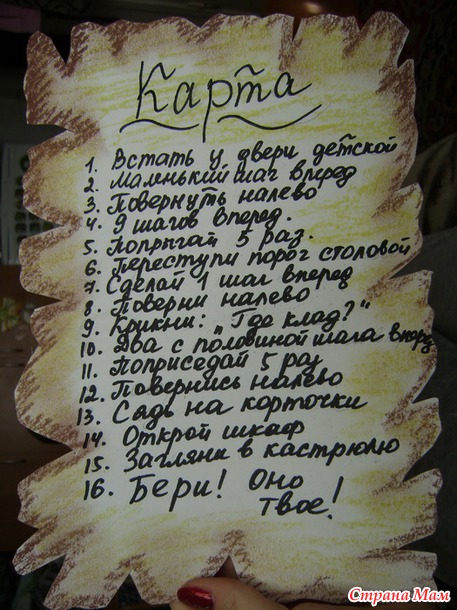 Карта
1. Встать у двери детской
2. Маленький шаг вперед
3. Повернуть налево
4. 9 шагов вперед.
5. Попрыгай 5 раз.
6. Переступи порог столовой
7. Сделай 1 шаг вперед
8. Поверни налево
9. Крикни: „Где клад?"
10. Два с половиной шага вперед
11. Поприседай 5 раз
12. Повернись налево
13. Сядь на корточки
14. Открой шкаф
15. Загляни в кастрюлю
16. Бери! Оно
твое!
Страна Мам